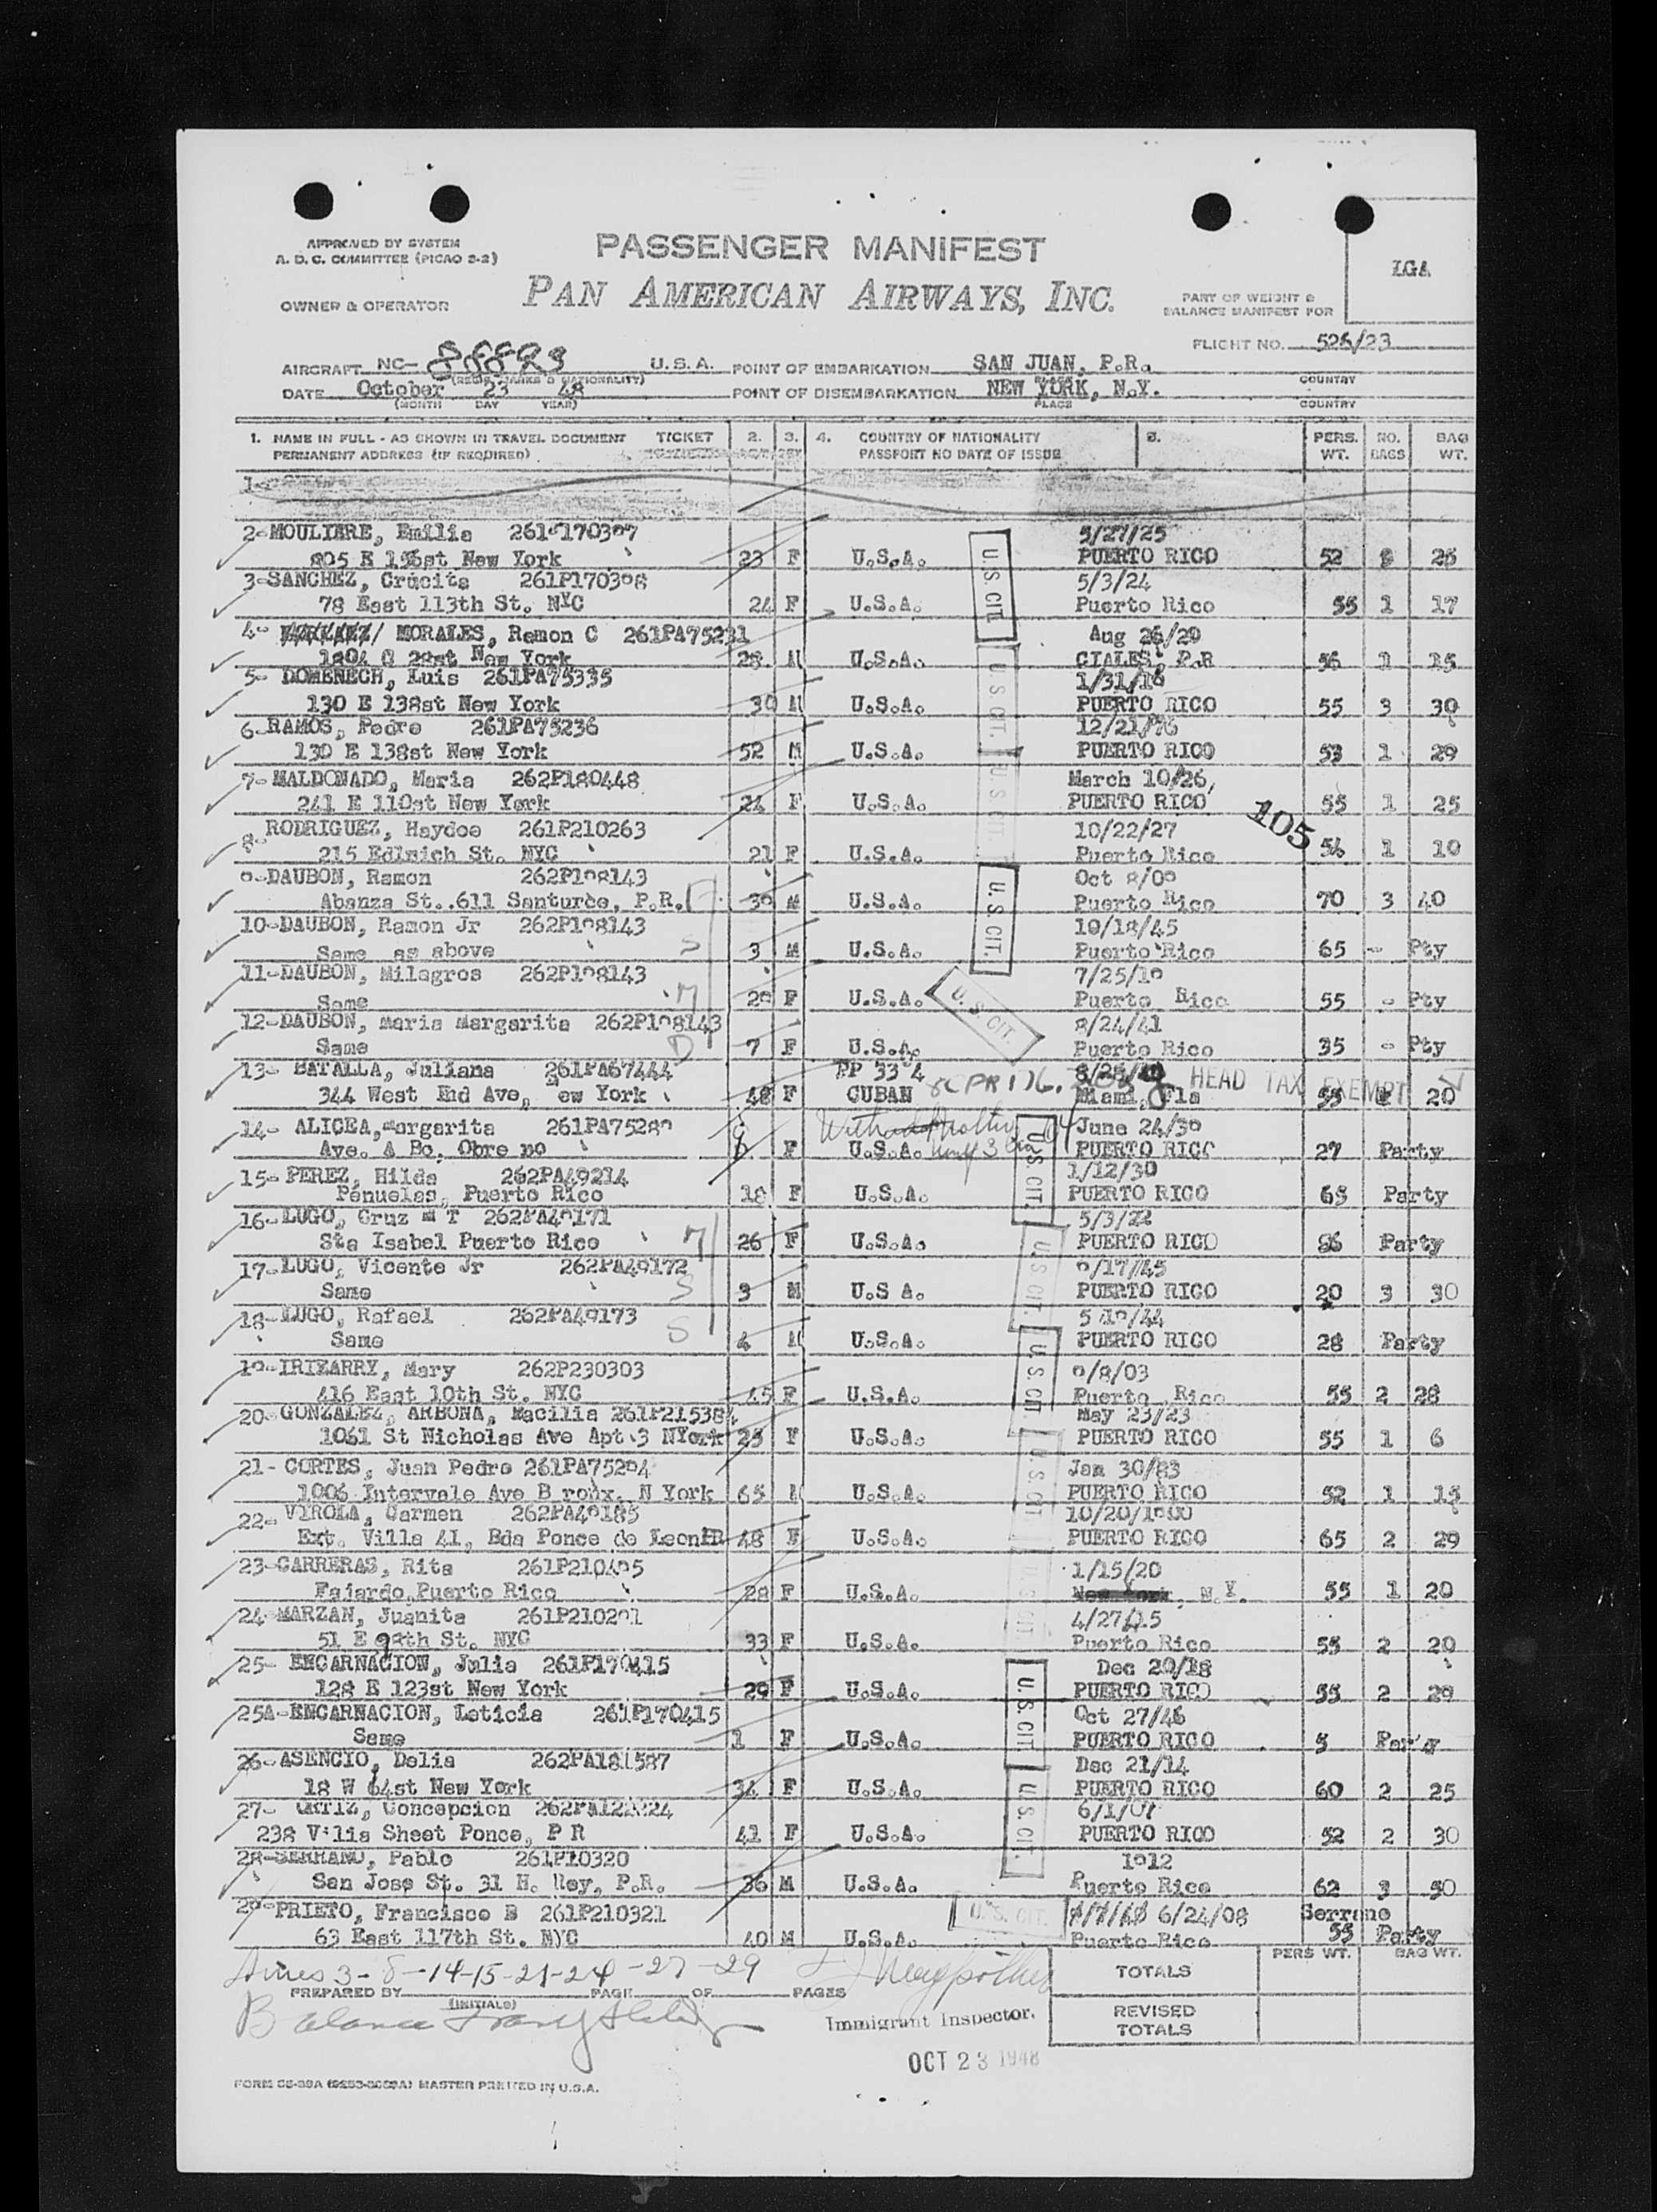 APPROVED BY SYSTEM
A. D. C. COMMITTEE (PICAO 2-2)
OWNER & OPERATOR
PASSENGER MANIFEST
PAN AMERICAN AIRWAYS, INC.
LGA
PART OF WEIGHT &
BALANCE MANIFEST FOR
FLIGHT NO. 526/23
AIRCRAFT NC- 88893 U.S.A. POINT OF EMBARKATION SAN JUAN, P.R.
(REGIS. MARKS & NATIONALITY) COUNTRY
DATE October 23 48 POINT OF DISEMBARKATION NEW YORK, N.Y.
(MONTH DAY YEAR) PLACE COUNTRY
1. NAME IN FULL - AS SHOWN IN TRAVEL DOCUMENT TICKET 2. 3. 4. COUNTRY OF NATIONALITY 5. PERS. NO. BAG
PERMANENT ADDRESS (IF REQUIRED) PASSPORT NO DATE OF ISSUE WT. BAGS WT.
1-
2-MOULIERE, Emilia 5/27/25
New York 23 F U.S.A. PUERTO RICO 52 25
3-SANCHEZ, Crucita 261P170398 5/3/24
78 East 113th St. NYC 24 F U.S.A. Puerto Rico 55 1 17
4- MORALES, Ramon C 261PA75231 Aug
New York 28 M U.S.A. CIALES, P.R 56 1 15
5- DOMENECH, Luis 261PA75335 1/31/18
130 E 138st New York 30 M U.S.A. PUERTO RICO 55 3 39
6-RAMOS, Pedro 261PA75236 12/21/
130 E 138st New York 52 M U.S.A. PUERTO RICO 53 1 29
7-MALDONADO, Maria 262P180448 March 10/26,
241 E 110st New York 24 F U.S.A. PUERTO RICO 55 1 25
105
8- RODRIGUEZ, Haydee 261P210263 10/22/27
215 St. NYC 21 F U.S.A. Puerto Rico 1 19
9-DAUBON, Ramon 262P198143 Oct 8/09
Abanza St..611 Santurce, P.R. F 39 M U.S.A. Puerto Rico 70 3 40
10-DAUBON, Ramon Jr 262P198143 10/18/45
Same as above S 3 M U.S.A. Puerto Rico 65 - Pty
11-DAUBON, Milagros 262P198143 7/25/19
Same M 29 F U.S.A. Puerto Rico 55 - Pty
12-DAUBON, Maria Margarita 262P198143 8/24/41
Same D 7 F U.S.A. Puerto Rico 35 - Pty
13- BATALLA, Juliana 261PA67444 PP HEAD TAX EXEMPT
344 West End Ave, ew York 48 F CUBAN Miami, Fla 55 20
14- ALICEA, Margarita 261PA75289 June 24/39
Ave. A Bo. Obre no F U.S.A. PUERTO RICO 27 Party
15- PEREZ, Hilda 262PA49214 1/12/30
Penuelas, Puerto Rico 18 F U.S.A. PUERTO RICO 65 Party
16-LUGO, Cruz M T 262PA49171 5/3/22
Sta Isabel Puerto Rico M 26 F U.S.A. PUERTO RICO Party
17-LUGO, Vicente Jr 262PA49172 9/17/45
Same S 3 M U.S A. PUERTO RICO 20 3 30
18-LUGO, Rafael 262PA49173 5/19/44
Same S 4 M U.S.A. PUERTO RICO 28 Party
19-IRIZARRY, Mary 262P230303 9/8/03
416 East 10th St. NYC 45 F U.S.A. Puerto Rico 55 2 28
20-GONZALEZ, ARBONA, Macilia 261P21538 May 23/23
1061 St Nicholas Ave Apt 3 NYork 25 F U.S.A. PUERTO RICO 55 1 6
21- CORTES, Juan Pedro 261PA75294 Jan 30/83
1006 Intervale Ave B ronx. N York 65 M U.S.A. PUERTO RICO 52 1 15
22- VIROLA, Carmen 262PA49185 10/20/1900
Ext. Villa 41, Bda Ponce de Leon 48 F U.S.A. PUERTO RICO 65 2 29
23-CARRERAS, Rita 261P210495 1/15/20
Fajardo, Puerto Rico 28 F U.S.A. New York, N.Y. 55 1 20
24-MARZAN, Juanita 261P210291 4/27/15
51 E 98th St. NYC 33 F U.S.A. Puerto Rico 55 2 20
25- ENCARNACION, Julia 261P170415 Dec 20/18
128 E 123st New York 29 F U.S.A. PUERTO RICO 55 2 29
25A-ENCARNACION, Leticia 261P170415 Oct 27/46
Same 1 F U.S.A. PUERTO RICO 5 Party
26-ASENCIO, Delia 262PA181587 Dec 21/14
18 W 64st New York 34 F U.S.A. PUERTO RICO 60 2 25
27- ORTIZ, Concepcion 6/1/07
238 Vilia Sheet Ponce, P R 41 F U.S.A. PUERTO RICO 52 2 30
28-SERRANO, Pablo 261P10320 1912
San Jose St. 31 H. Rey, P.R. 36 M U.S.A. Puerto Rico 62 3 50
29-PRIETO, Francisco B 261P210321 6/24/08 Serrano
63 East 117th St. NYC 40 M U.S.A. Puerto Rico 55 Party
U.S. CIT.
U.S. CIT.
U.S. CIT.
U.S. CIT.
U.S. CIT.
U.S. CIT.
U.S. CIT.
U.S. CIT.
U.S. CIT.
U.S. CIT.
U.S. CIT.
U.S. CIT.
U.S. CIT.
3-8-14-15-21-24-27-29
PERS WT. BAG WT.
TOTALS
PREPARED BY PAGE OF PAGES
(INITIALS)
Immigrant Inspector.
REVISED
TOTALS
OCT 23 1948
FORM MASTER PRINTED IN U.S.A.